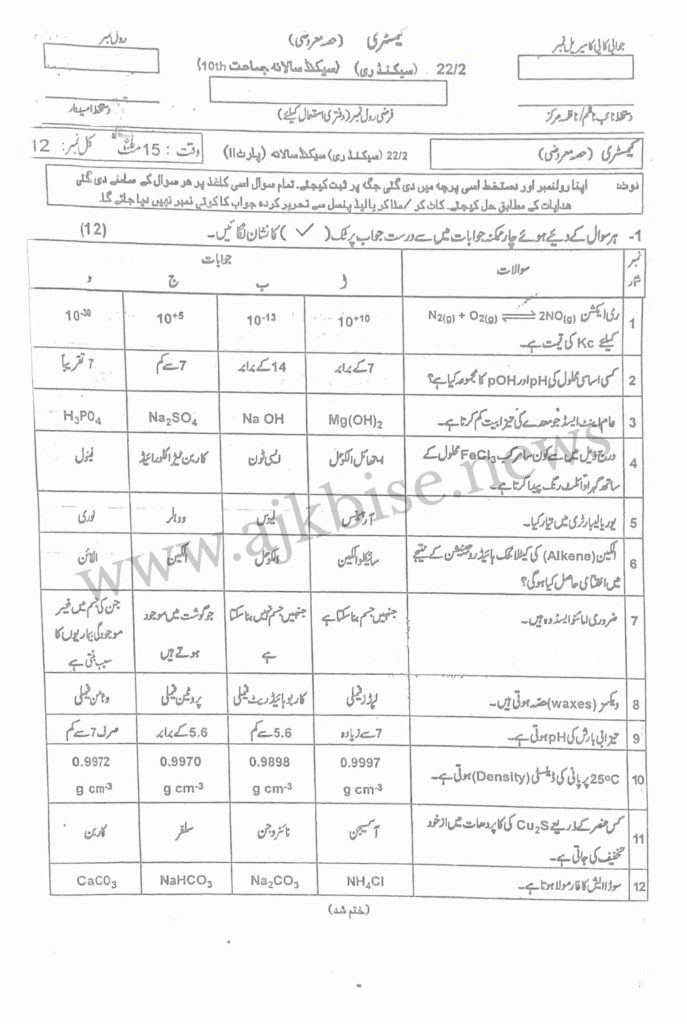 جوابی کاپی کا سیریل نمبر
کیمسٹری (حصہ معروضی)
رول نمبر
22/2 (سیکنڈری) (سیکنڈ سالانہ جماعت 10th)
دستخط نائب ناظم/ناظمہ مرکز
فرضی رول نمبر (دفتری استعمال کیلئے)
دستخط امیدوار
کیمسٹری (حصہ معروضی)
22/2 (سیکنڈری) سیکنڈ سالانہ (پارٹ II)
وقت : 15 منٹ کل نمبر: 12
نوٹ: اپنا رولنمبر اور دستخط اسی پرچہ میں دی گئی جگہ پر ثبت کیجئے۔ تمام سوال اسی کاغذ پر ھر سوال کے سامنے دی گئی
ھدایات کے مطابق حل کیجئے۔ کاٹ کر /مٹا کر یا لیڈ پنسل سے تحریر کردہ جواب کا کوئی نمبر نہیں دیا جائے گا۔
1- ہر سوال کے دیئے ہوئے چار ممکنہ جوابات میں سے درست جواب پر ٹک( ✓ ) کا نشان لگائیں۔ (12)
نمبر شمار سوالات جوابات
ا ب ج د
1 ری ایکشن N2(g) + O2(g) ⇌ 2NO(g)
کیلئے Kc کی قیمت ہے۔
10+10 10-13 10+5 10-30
2 کسی اساسی محلول کی pH اور pOH کا مجموعہ کیا ہے؟ 7 کے برابر 14 کے برابر 7 سے کم 7 تقریباً
3 عام اینٹ ایسڈ جو معدے کی تیزابیت کم کرتا ہے۔ Mg(OH)2 Na OH Na2SO4 H3PO4
4 درج ذیل میں سے کون سا مرکب FeCl3 محلول کے
ساتھ گہرا وائلٹ رنگ پیدا کرتا ہے۔
ایتھائل الکوحل ایسی ٹون کاربن ٹیٹراکلورائیڈ فینول
5 یوریا لیبارٹری میں تیار کیا۔ آرہینیس لیوس ووہلر لوری
6 الکین(Alkene) کی کیٹالٹک ہائیڈروجینیشن کے نتیجے
میں اختتامی حاصل کیا ہوگی؟
سائیکلو الکین الکوحل الکین الکائن
7 ضروری امائنو ایسڈ وہ ہیں۔
جنہیں جسم بنا سکتا ہے
جنہیں جسم نہیں بنا سکتا
ہے
جو گوشت میں موجود
ہوتے ہیں
جن کی جسم میں غیر
موجودگی بیماریوں کا
سبب بنتی ہے
8 ویکسز (waxes) حصہ ہوتی ہیں۔ لپڈز فیملی کاربوہائیڈریٹ فیملی پروٹین فیملی وٹامن فیملی
9 تیزابی بارش کی pH ہوتی ہے۔ 7 سے زیادہ 5.6 سے کم 5.6 کے برابر صرف 7 سے کم
10 25oC پر پانی کی ڈینسٹی (Density) ہوتی ہے۔
0.9997 0.9898 0.9970 0.9972
g cm-3 g cm-3 g cm-3 g cm-3
11 کس عنصر کے ذریعے Cu2S کی کاپر دھات میں از خود
تخفیف کی جاتی ہے۔
آکسیجن نائٹروجن سلفر کاربن
12 سوڈا ایش کا فارمولا ہوتا ہے۔ NH4Cl Na2CO3 NaHCO3 CaCO3
(ختم شد)
www.ajkbise.news